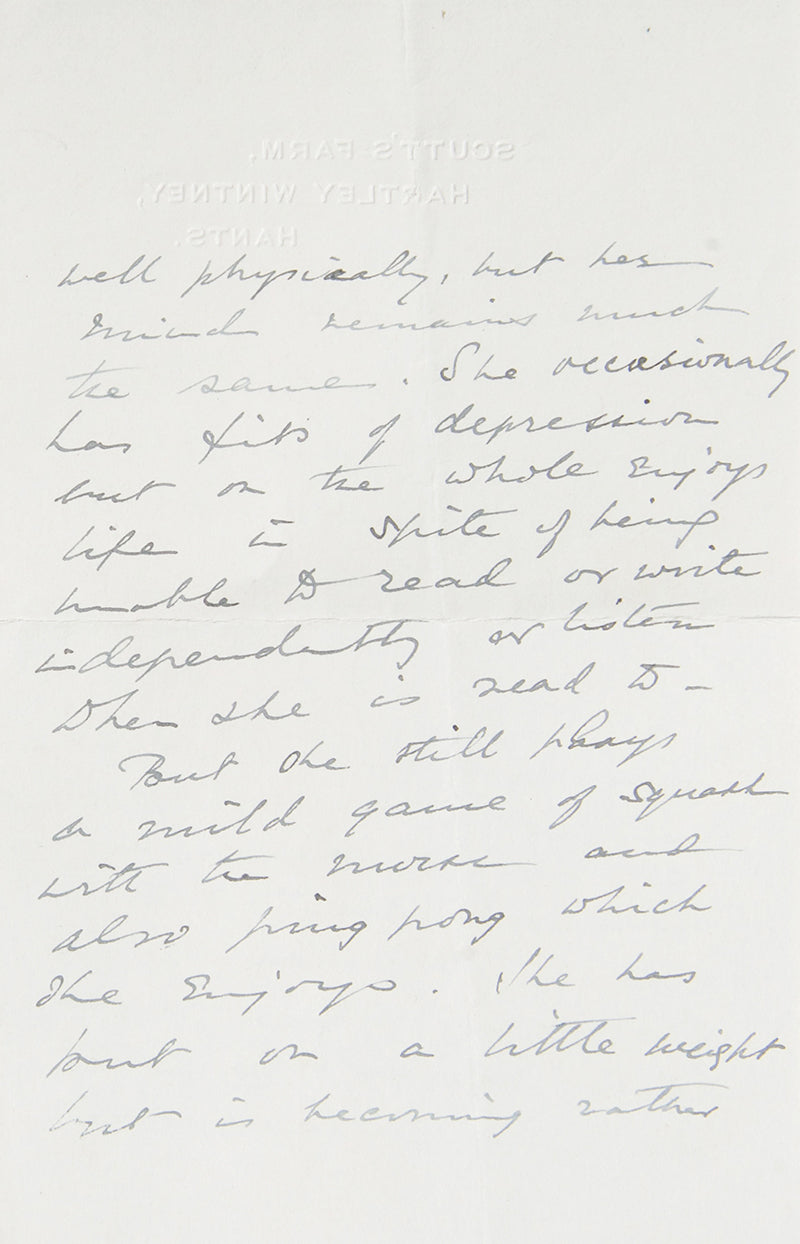 SCUTT'S FARM,
HARTLEY WINTNEY,
HANTS.
well physically, but her
mind remains much
the same. She occasionally
has fits of depression
but on the whole enjoys
life in spite of being
unable to read or write
independently or listen
when she is read to -
But she still plays
a mild game of squash
with the nurse and
also ping pong which
she enjoys. She has
put on a little weight
but is becoming rather